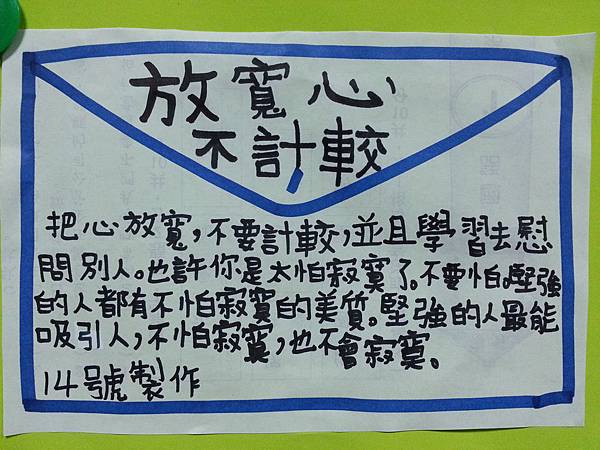 放寬心
不計較
把心放寬,不要計較,並且學習去慰
問別人。也許你是太怕寂寞了。不要怕。堅強
的人都有不怕寂寞的美質。堅強的人最能
吸引人,不怕寂寞,也不會寂寞。
14號製作